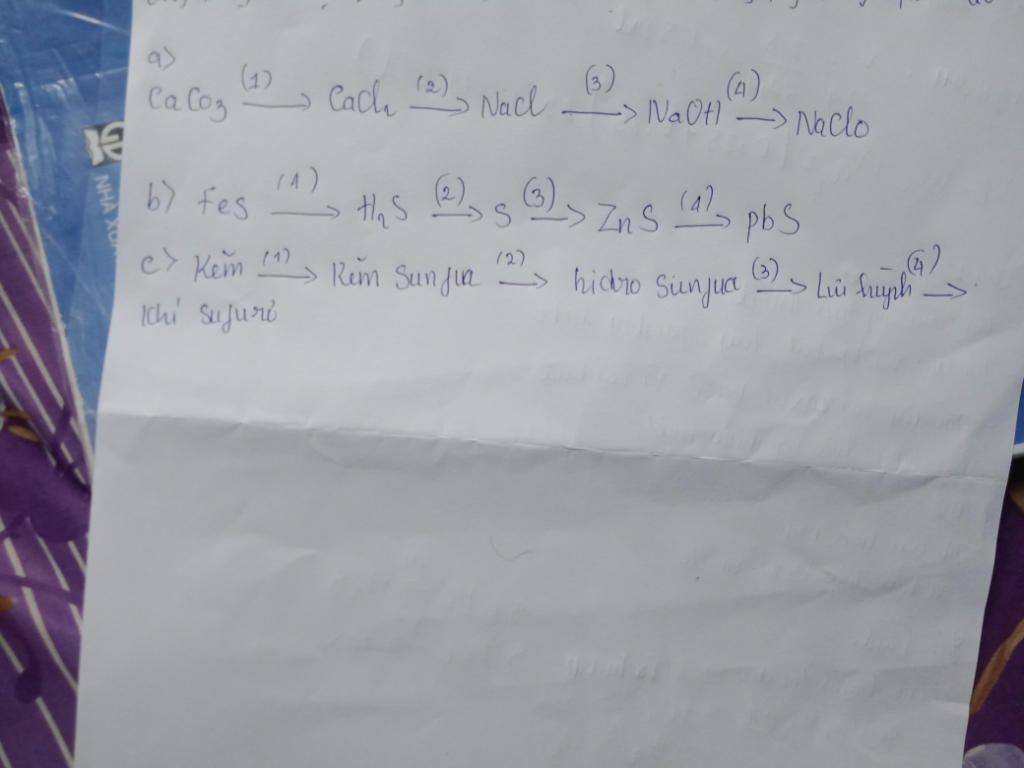 a)
CaCO3 (1)→ CaCl2 (2)→ NaCl (3)→ NaOH (4)→ NaClO
b) FeS (1)→ H2S (2)→ S (3)→ ZnS (1)→ pbS
c) Kẽm (1)→ Kẽm Sunfua (2)→ hidro Sunfua (3)→ Lưu huỳnh (4)→
Khí sufurơ
NHÀ